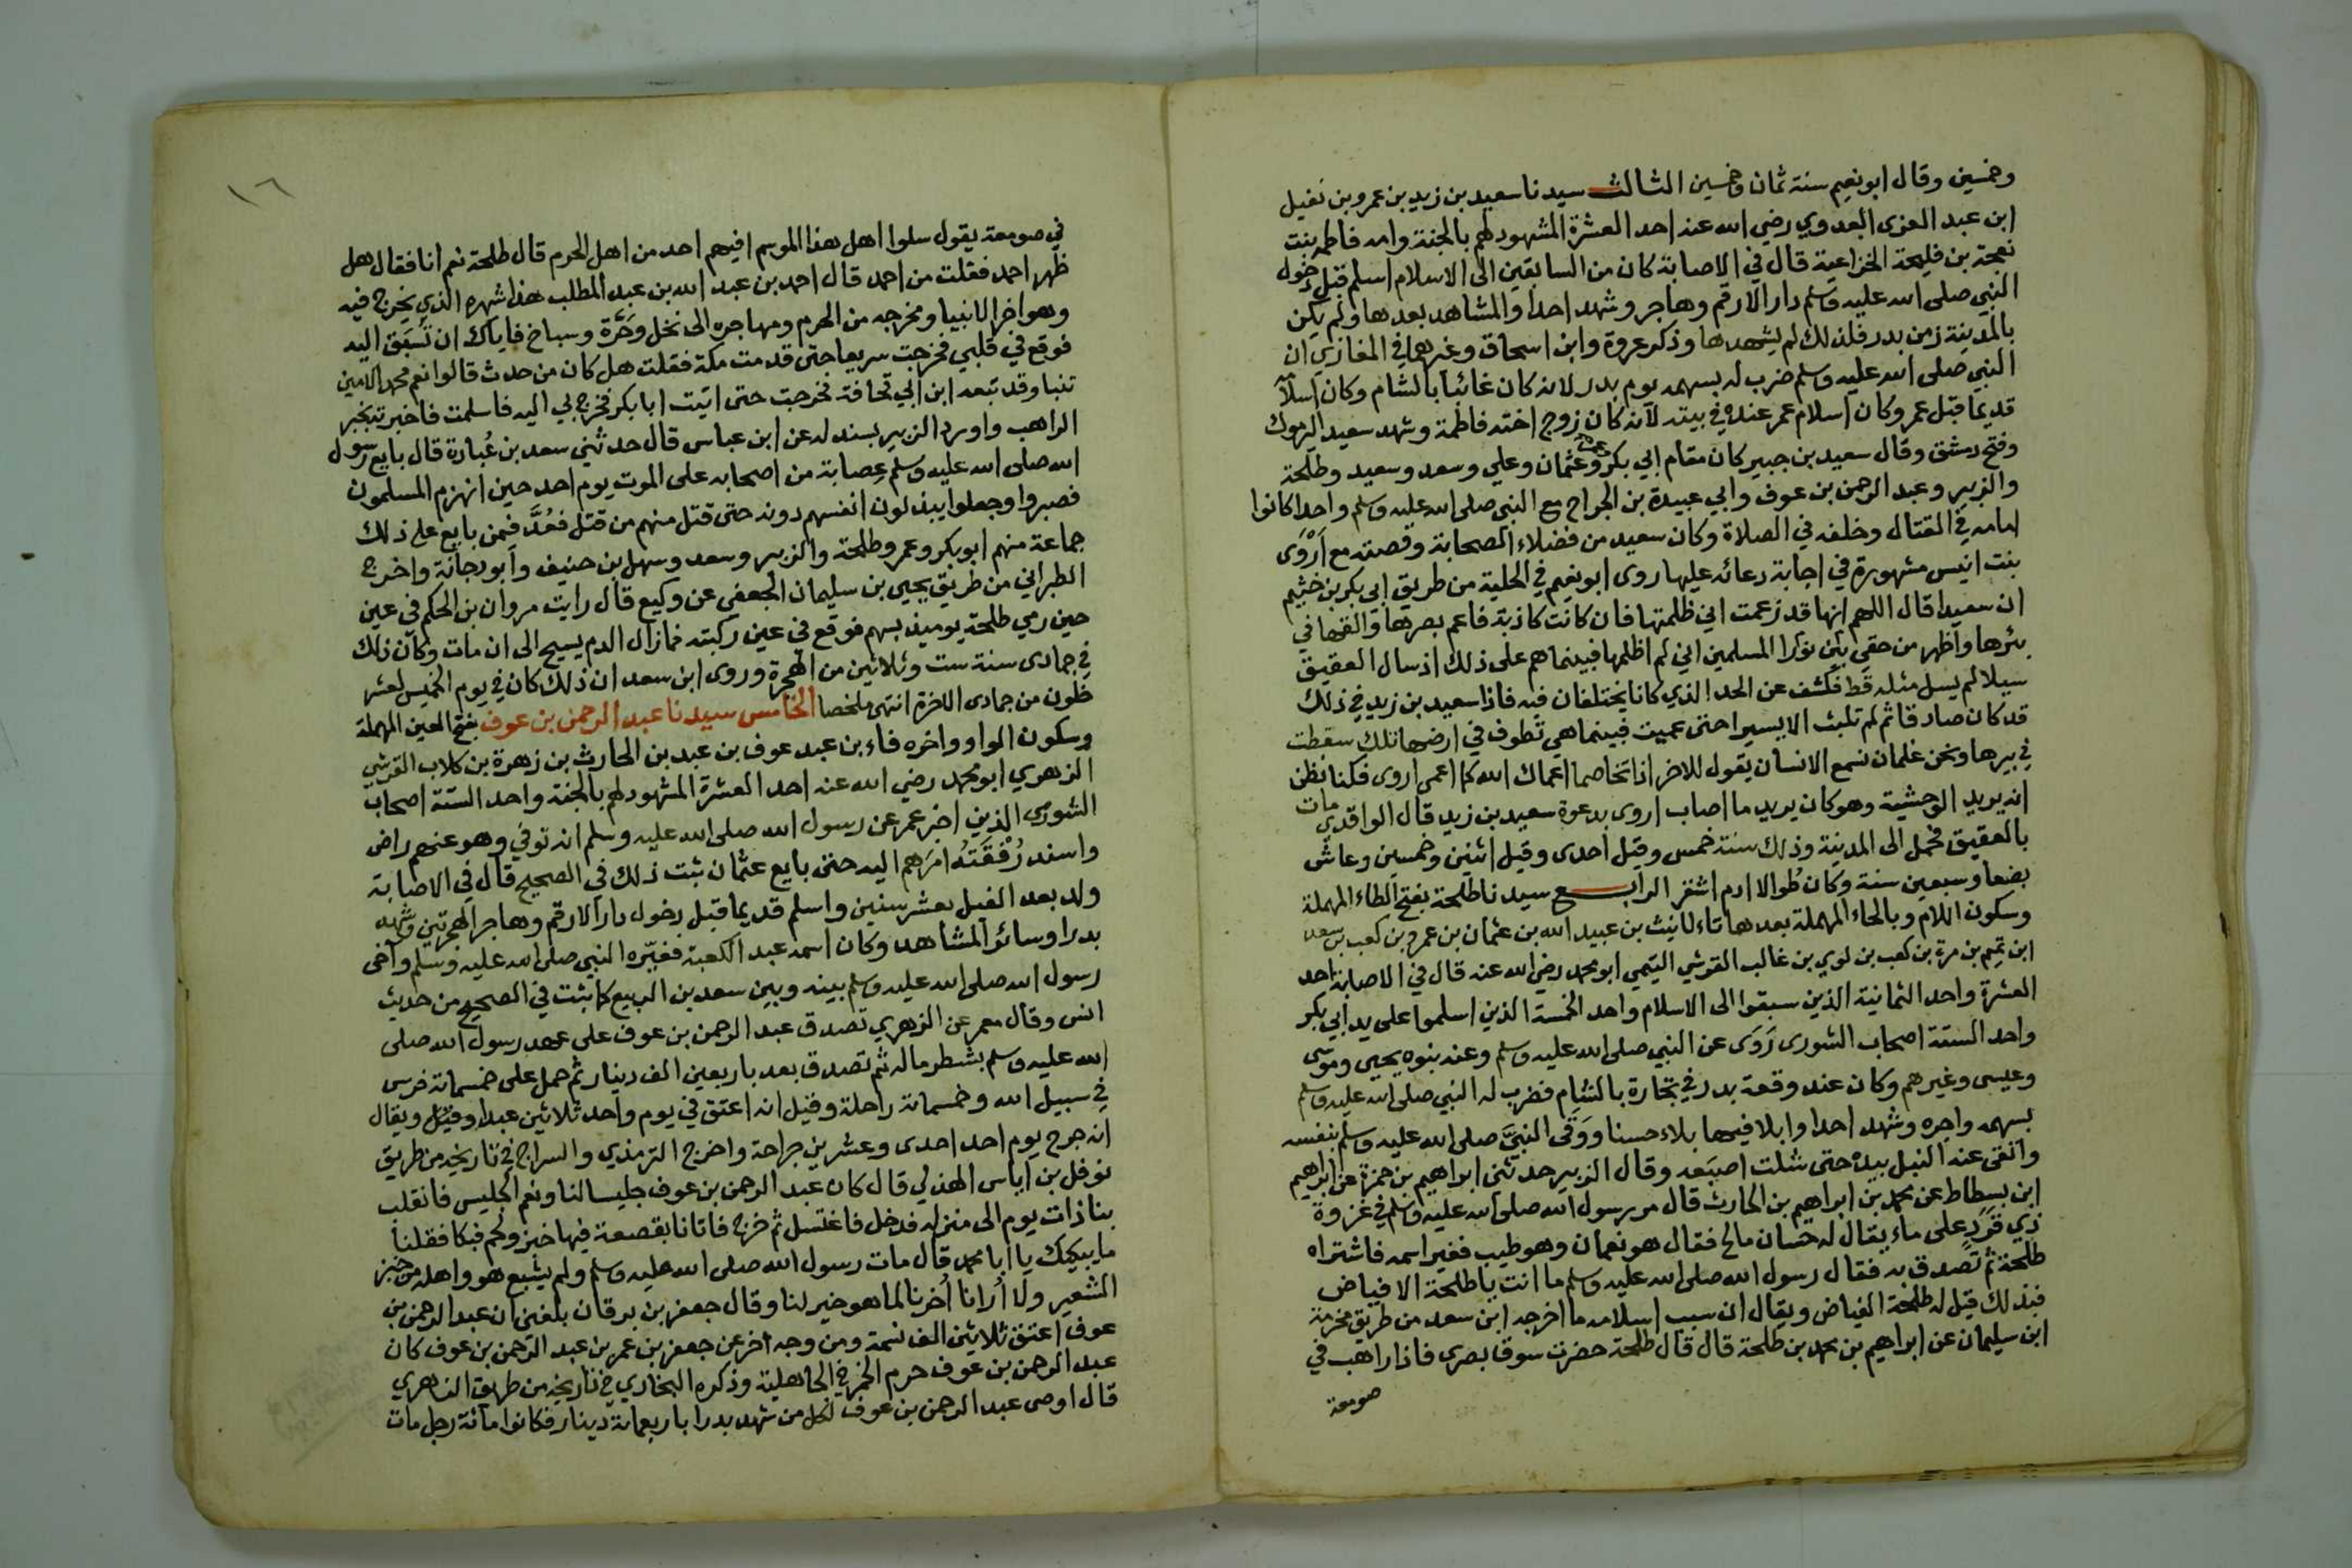 وخمسين وقال ابو نعيم سنة ثمان وخمسين الثالث سيدنا سعيد بن زيد بن عمرو بن نفيل
ابن عبد العزى العدوي رضي الله عنه احد العشرة المشهود لهم بالجنة وامه فاطمة بنت
نعجة بن مليحة الخزاعية قال في الاصابة كان من السابقين الى الاسلام اسلم قبل دخول
النبي صلى الله عليه وسلم دار الارقم وهاجر وشهد احدا والمشاهد بعدها ولم يكن
بالمدينة زمن بدر فلذلك لم يشهدها وذكر عروة وابن اسحاق وغيرهما في المغازي ان
النبي صلى الله عليه وسلم ضرب له بسهمه يوم بدر لانه كان غائبا بالشام وكان اسلامه
قديما قبل عمر وكان اسلام عمر عنده في بيته لانه كان زوج اخته فاطمة وشهد سعيد اليرموك
وفتح دمشق وقال سعيد بن جبير كان مقام ابي بكر وعمر وعثمان وعلي وسعد وسعيد وطلحة
والزبير وعبد الرحمن بن عوف وابي عبيدة بن الجراح مع النبي صلى الله عليه وسلم واحدا كانوا
امامه في القتال وخلفه في الصلاة وكان سعيد من فضلاء الصحابة وقصته مع اروى
بنت انيس مشهورة في اجابة دعائه عليها روى ابو نعيم في الحلية من طريق ابي بكر بن خثيم
ان سعيدا قال اللهم انها قد زعمت اني ظلمتها فان كانت كاذبة فاعم بصرها والقها في
بئرها واظهر من حقي بين نورا المسلمين اني لم اظلمها فبينما هم على ذلك اذ سال العقيق
سيلا لم يسل مثله قط فكشف عن الحد الذي كانا يختلفان فيه فاذا سعيد بن زيد في ذلك
قد كان صادقا ثم لم تلبث الا يسيرا حتى عميت فبينما هي تطوف في ارضها تلك سقطت
في بيرها ونحن غلمان نسمع الانسان يقول للاخر اذا تخاصما اعماك الله كما اعمى اروى فكنا نظن
انه يريد الوحشية وهو كان يريد ما اصاب اروى بدعوة سعيد بن زيد قال الواقدي مات
بالعقيق فحمل الى المدينة وذلك سنة خمس وقيل احدى وقيل اثنين وخمسين وعاش
بضعا وسبعين سنة وكان طوالا ادم اشقر الرابع سيدنا طلحة بفتح الطاء المهملة
وسكون اللام وبالحاء المهملة بعدها تاء تانيث بن عبيد الله بن عثمان بن عمرو بن كعب بن سعد
ابن تيم بن مرة بن كعب بن لوي بن غالب القرشي التيمي ابو محمد رضي الله عنه قال في الاصابة احد
العشرة واحد الثمانية الذين سبقوا الى الاسلام واحد الخمسة الذين اسلموا على يد ابي بكر
واحد الستة اصحاب الشورى روى عن النبي صلى الله عليه وسلم وعنه بنوه يحيى وموسى
وعيسى وغيرهم وكان عند وقعة بدر في تجارة بالشام فضرب له النبي صلى الله عليه وسلم
بسهمه واجره وشهد احدا وابلا فيها بلاء حسنا ووقى النبي صلى الله عليه وسلم بنفسه
واتقى عنه النبل بيده حتى شلت اصبعه وقال الزبير حدثني ابراهيم بن حمزة عن ابراهيم
ابن بسطاط عن محمد بن ابراهيم بن الحارث قال مر رسول الله صلى الله عليه وسلم في غزوة
ذي قرد على ماء يقال له حسان مالح فقال هو نعمان وهو طيب فغير اسمه فاشتراه
طلحة ثم تصدق به فقال رسول الله صلى الله عليه وسلم ما انت يا طلحة الا فياض
فبذلك قيل له طلحة الفياض ويقال ان سبب اسلامه ما اخرجه ابن سعد من طريق مخرمة
ابن سليمان عن ابراهيم بن محمد بن طلحة قال قال طلحة حضرت سوق بصرى فاذا راهب في
صومعة
١٦
في صومعة يقول سلوا اهل هذا الموسم افيهم احد من اهل الحرم قال طلحة نعم انا فقال هل
ظهر احمد فقلت من احمد قال احمد بن عبد الله بن عبد المطلب هذا شهره الذي يخرج فيه
وهو اخر الانبيا ومخرجه من الحرم ومهاجره الى نخل وحرة وسباخ فاياك ان تسبق اليه
فوقع في قلبي فخرجت سريعا حتى قدمت مكة فقلت هل كان من حدث قالوا نعم محمد الامين
تنبا وقد تبعه ابن ابي قحافة فخرجت حتى اتيت ابا بكر فخرج بي اليه فاسلمت فاخبرته بخبر
الراهب واورد الزبير بسند له عن ابن عباس قال حدثني سعد بن عبادة قال بايع رسول
الله صلى الله عليه وسلم عصابة من اصحابه على الموت يوم احد حين انهزم المسلمون
فصبروا وجعلوا يبذلون انفسهم دونه حتى قتل منهم من قتل فعد فيمن بايع على ذلك
جماعة منهم ابو بكر وعمر وطلحة والزبير وسعد وسهل بن حنيف وابو دجانة واخرج
الطبراني من طريق يحيى بن سليمان الجعفي عن وكيع قال رايت مروان بن الحكم في عين
حين رمي طلحة يوميذ بسهم فوقع في عين ركبته فما زال الدم يسيح الى ان مات وكان ذلك
في جمادى سنة ست وثلاثين من الهجرة وروى ابن سعد ان ذلك كان في يوم الخميس لعشر
خلون من جمادى الاخرة انتهى ملخصا الخامس سيدنا عبد الرحمن بن عوف بفتح العين المهملة
وسكون الواو واخره فاء بن عبد عوف بن عبد بن الحارث بن زهرة بن كلاب القرشي
الزهري ابو محمد رضي الله عنه احد العشرة المشهود لهم بالجنة واحد الستة اصحاب
الشورى الذين اخبر عمر عن رسول الله صلى الله عليه وسلم انه توفي وهو عنهم راض
واسند رفقته امرهم اليه حتى بايع عثمان ثبت ذلك في الصحيح قال في الاصابة
ولد بعد الفيل بعشر سنين واسلم قديما قبل دخول دار الارقم وهاجر الهجرتين وشهد
بدرا وسائر المشاهد وكان اسمه عبد الكعبة فغيره النبي صلى الله عليه وسلم وآخى
رسول الله صلى الله عليه وسلم بينه وبين سعد بن الربيع كما ثبت في الصحيح من حديث
انس وقال معمر عن الزهري تصدق عبد الرحمن بن عوف على عهد رسول الله صلى
الله عليه وسلم بشطر ماله ثم تصدق بعد باربعين الف دينار ثم حمل على خمسمائة فرس
في سبيل الله وخمسمائة راحلة وقيل انه اعتق في يوم واحد ثلاثين عبدا وقيل ويقال
انه جرح يوم احد احدى وعشرين جراحة واخرج الترمذي والسراج في تاريخه من طريق
نوفل بن اياس الهذلي قال كان عبد الرحمن بن عوف جليسا لنا ونعم الجليس فانقلب
بنا ذات يوم الى منزله فدخل فاغتسل ثم خرج فاتانا بقصعة فيها خبز ولحم فبكا فقلنا
ما يبكيك يا ابا محمد قال مات رسول الله صلى الله عليه وسلم ولم يشبع هو واهله من خبز
الشعير ولا أرانا أخرنا لما هو خير لنا وقال جعفر بن برقان بلغني ان عبد الرحمن بن
عوف اعتق ثلاثين الف نسمة ومن وجه اخر عن جعفر بن عمر بن عبد الرحمن بن عوف كان
عبد الرحمن بن عوف حرم الخمر في الجاهلية وذكره البخاري في تاريخه من طريق الزهري
قال اوصى عبد الرحمن بن عوف لكل من شهد بدرا باربعماية دينار فكانوا مائة رجل مات